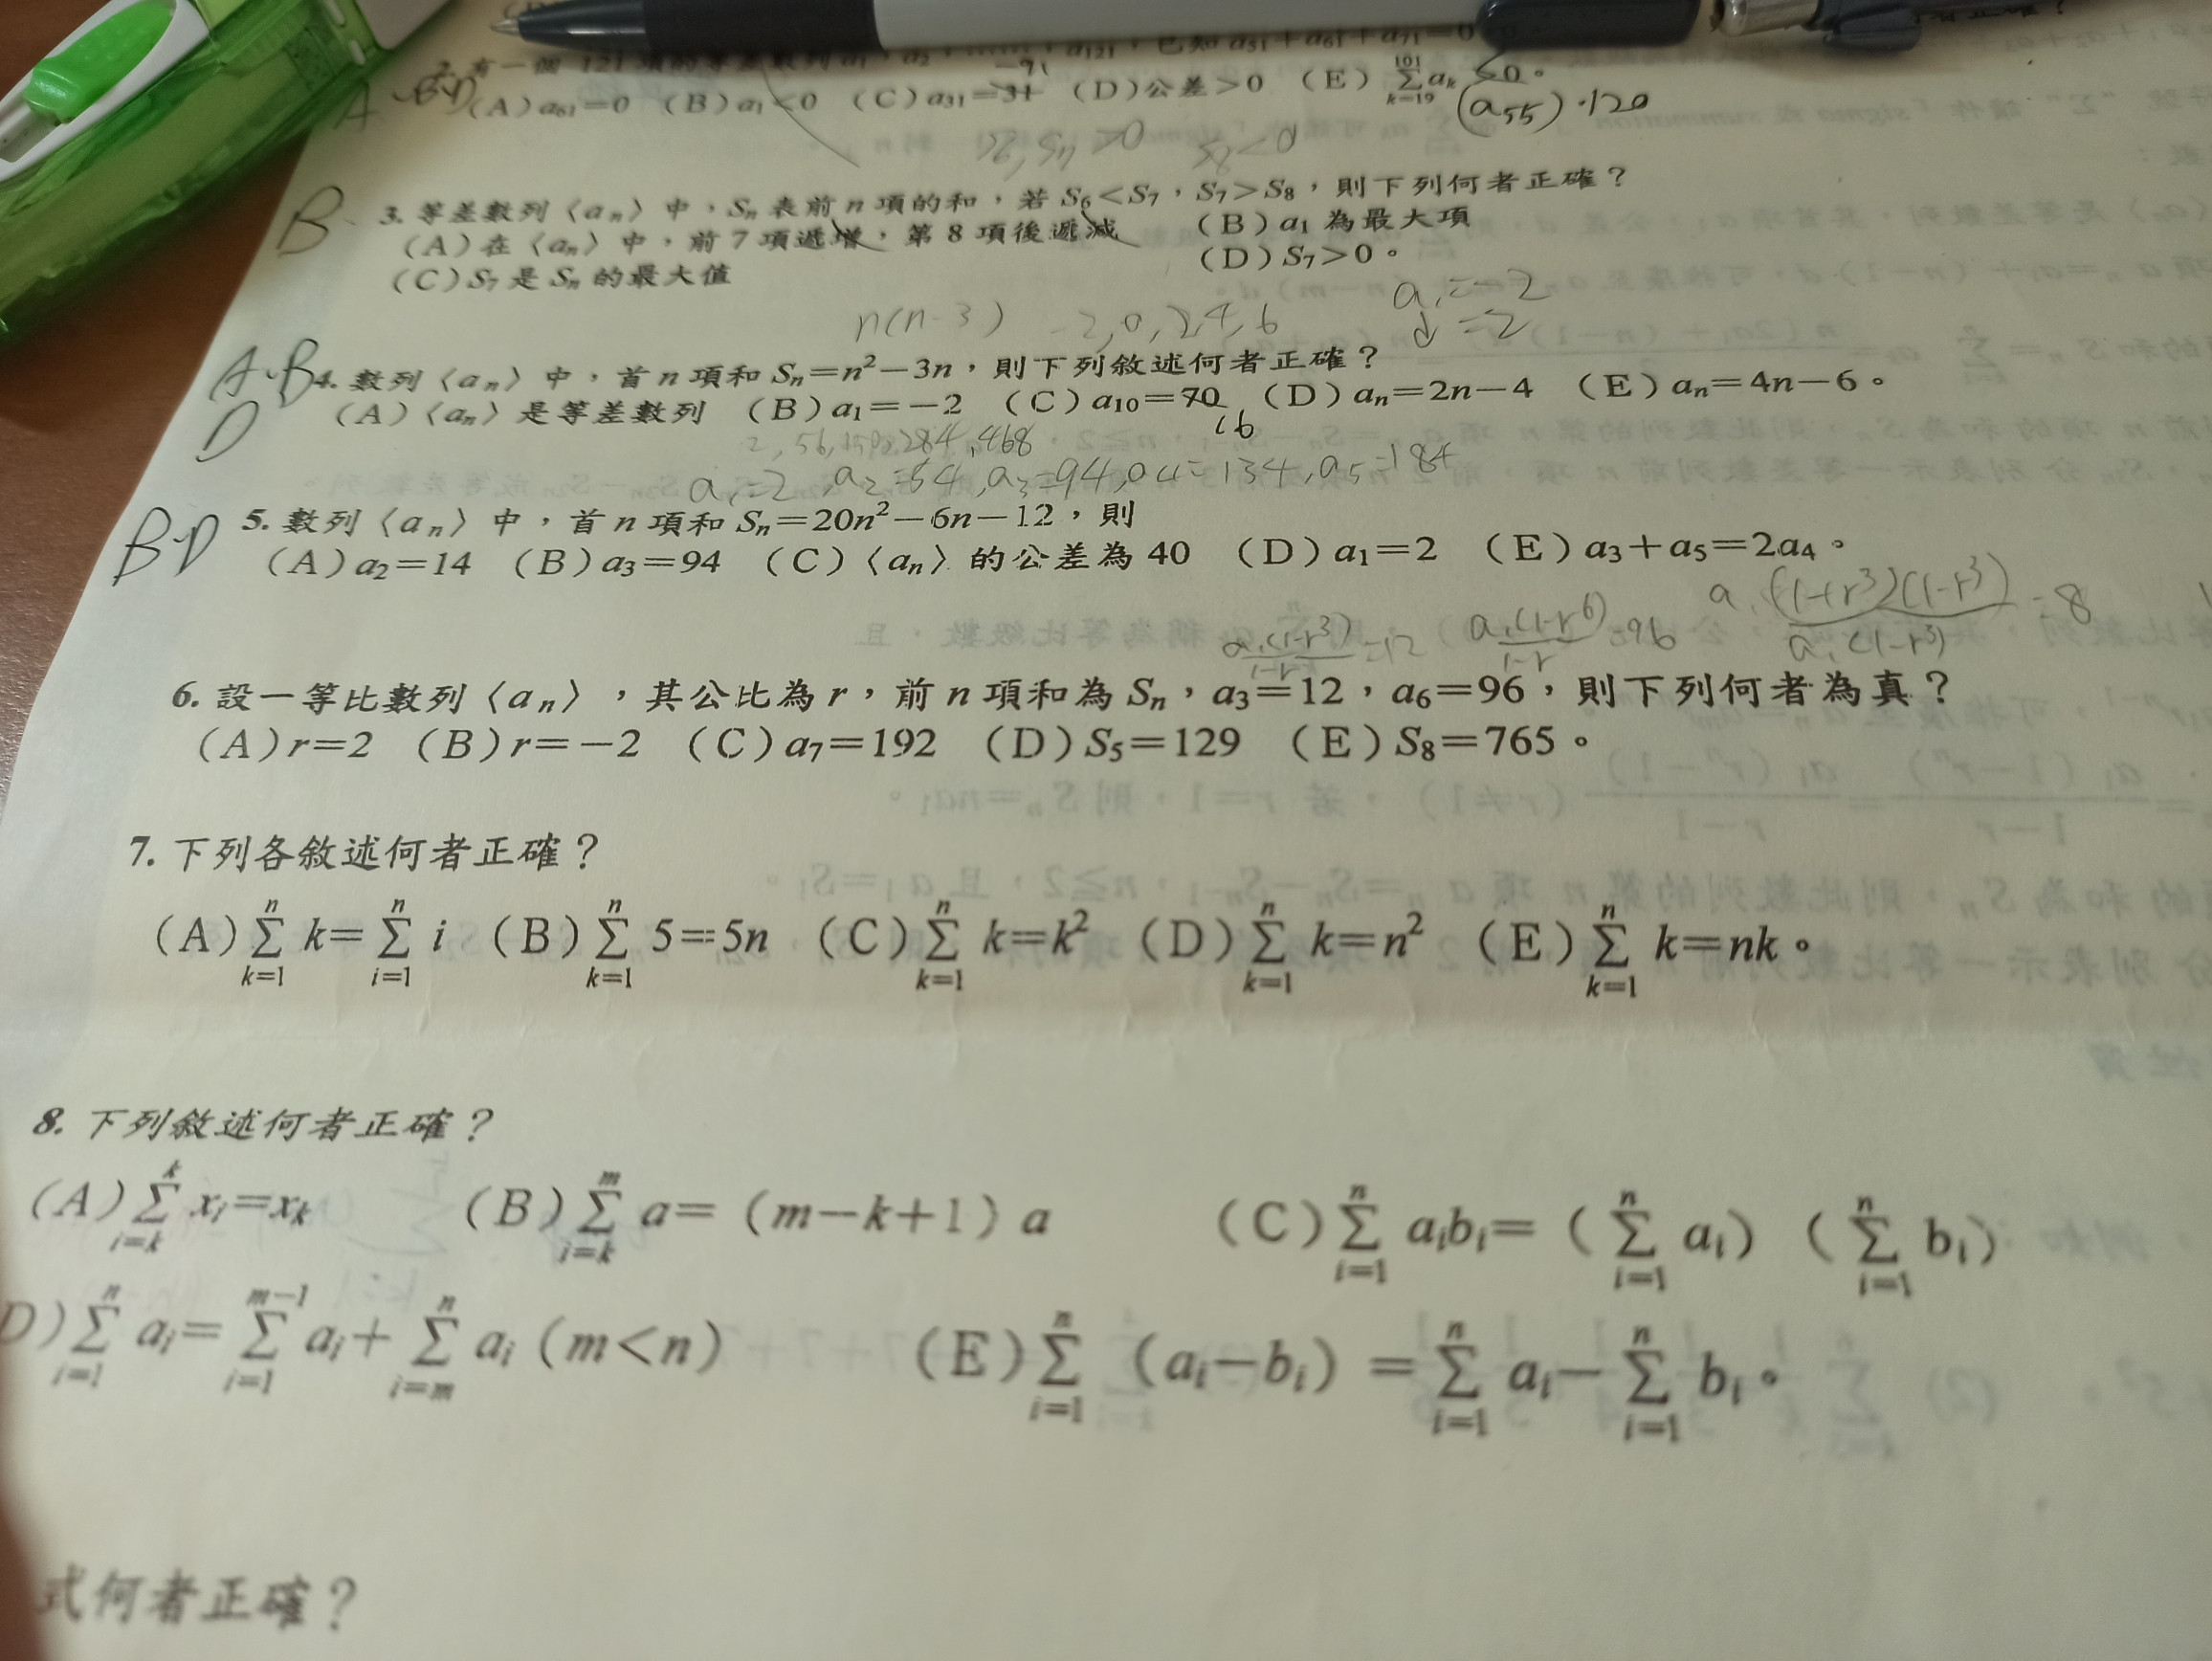 2. 有一個 121 項的等差數列 a₁，a₂，……，a₁₂₁，已知 a₅₁＋a₆₁＋a₇₁＝0
(A) a₆₁＝0 (B) a₁＜0 (C) a₃₁＝31 (D) 公差＞0 (E) ∑_{k=19}^{101} a_k ≤0。
(a₅₅)·120
B
3. 等差數列〈aₙ〉中，Sₙ 表前 n 項的和，若 S₆＜S₇，S₇＞S₈，則下列何者正確？
(A) 在〈aₙ〉中，前 7 項遞增，第 8 項後遞減 (B) a₁ 為最大項
(C) S₇ 是 Sₙ 的最大值 (D) S₇＞0。
n(n-3) -2,0,2,4,6 a₁=-2
d=2
A、B
D
4. 數列〈aₙ〉中，首 n 項和 Sₙ＝n²－3n，則下列敘述何者正確？
(A)〈aₙ〉是等差數列 (B) a₁＝－2 (C) a₁₀＝70 (D) aₙ＝2n－4 (E) aₙ＝4n－6。
16
a₁=2, a₂=54, a₃=94, a4=134, a₅=184
B、D
5. 數列〈aₙ〉中，首 n 項和 Sₙ＝20n²－6n－12，則
(A) a₂＝14 (B) a₃＝94 (C)〈aₙ〉的公差為 40 (D) a₁＝2 (E) a₃＋a₅＝2a₄。
a₁(1-r³)/1-r =12 a₁(1-r⁶)/1-r =96 a₁(1+r³)(1-r³)/a₁(1-r³) =8
6. 設一等比數列〈aₙ〉，其公比為 r，前 n 項和為 Sₙ，a₃＝12，a₆＝96，則下列何者為真？
(A) r＝2 (B) r＝－2 (C) a₇＝192 (D) S₅＝129 (E) S₈＝765。
7. 下列各敘述何者正確？
(A) ∑_{k=1}^{n} k＝∑_{i=1}^{n} i (B) ∑_{k=1}^{n} 5＝5n (C) ∑_{k=1}^{n} k＝k² (D) ∑_{k=1}^{n} k＝n² (E) ∑_{k=1}^{n} k＝nk。
8. 下列敘述何者正確？
(A) ∑_{i=k}^{k} x_i＝x_k (B) ∑_{i=k}^{m} a＝(m－k＋1) a (C) ∑_{i=1}^{n} a_i b_i＝(∑_{i=1}^{n} a_i) (∑_{i=1}^{n} b_i)
D) ∑_{i=1}^{n} a_i＝∑_{i=1}^{m-1} a_i＋∑_{i=m}^{n} a_i (m＜n) (E) ∑_{i=1}^{n} (a_i－b_i)＝∑_{i=1}^{n} a_i－∑_{i=1}^{n} b_i。
式何者正確？